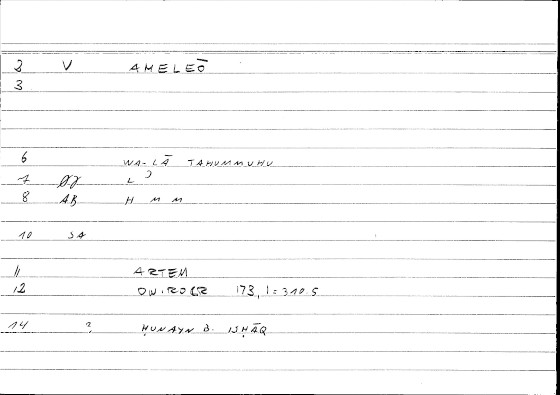 2 V AMELEŌ
3
6 WA-LĀ TAHUMMUHU
7
8 AB H M M
10 SA
11 ARTEM
12 173, 1 = 310 5
14 ? ḤUNAYN B. ISḤĀQ